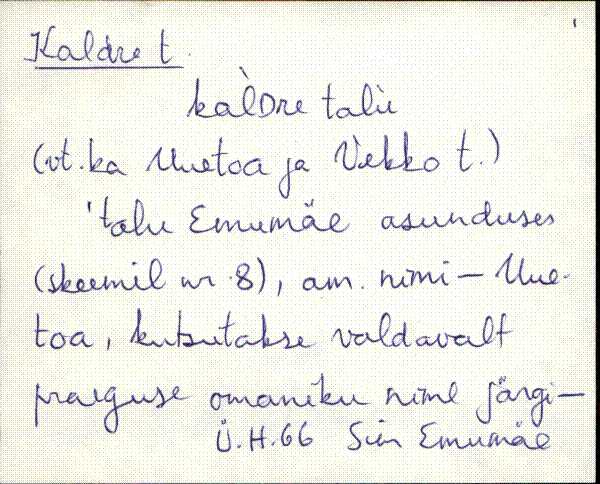 Kaldre t.
kàlDre talù
(vt. ka Uuetoa ja Vekko t.)
'talu Emumäe asunduses
(skeemil nr. 8), am. nimi – Uue-
toa, kutsutakse valdavalt
praeguse omaniku nime järgi –
Ü.H. 66 Sim Emumäe